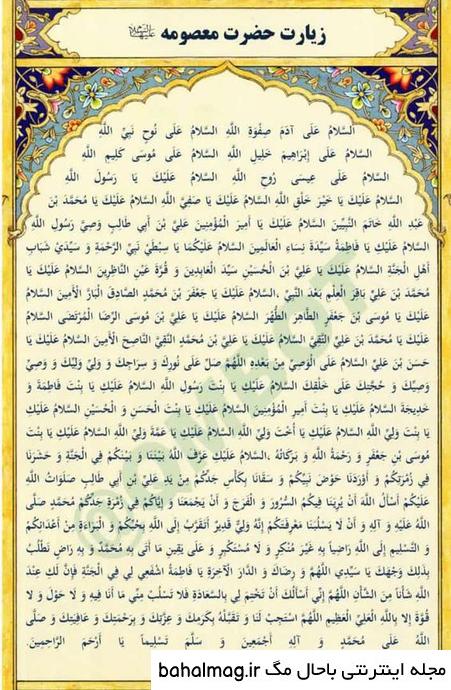 زیارت حضرت معصومه علیها السلام
اَلسَّلامُ عَلی آدَمَ صِفْوَةِ اللَّهِ السَّلامُ عَلی نُوحٍ نَبِیِّ اللَّهِ
السَّلامُ عَلی إِبْراهِیمَ خَلِیلِ اللَّهِ السَّلامُ عَلی مُوسَی کَلِیمِ اللَّهِ
السَّلامُ عَلی عِیسَی رُوحِ اللَّهِ السَّلامُ عَلَیْکَ یَا رَسُولَ اللَّهِ
السَّلامُ عَلَیْکَ یَا خَیْرَ خَلْقِ اللَّهِ السَّلامُ عَلَیْکَ یَا صَفِیَّ اللَّهِ السَّلامُ عَلَیْکَ یَا مُحَمَّدَ بْنَ
عَبْدِ اللَّهِ خَاتَمَ النَّبِیِّینَ السَّلامُ عَلَیْکَ یَا أَمِیرَ الْمُؤْمِنِینَ عَلِیَّ بْنَ أَبِی طَالِبٍ وَصِیَّ رَسُولِ اللَّهِ
السَّلامُ عَلَیْکِ یَا فَاطِمَةُ سَیِّدَةَ نِسَاءِ الْعَالَمِینَ السَّلامُ عَلَیْکُمَا یَا سِبْطَیْ نَبِیِّ الرَّحْمَةِ وَ سَیِّدَیْ شَبَابِ
أَهْلِ الْجَنَّةِ السَّلامُ عَلَیْکَ یَا عَلِیَّ بْنَ الْحُسَیْنِ سَیِّدَ الْعَابِدِینَ وَ قُرَّةَ عَیْنِ النَّاظِرِینَ السَّلامُ عَلَیْکَ یَا
مُحَمَّدَ بْنَ عَلِیٍّ بَاقِرَ الْعِلْمِ بَعْدَ النَّبِیِّ ،السَّلامُ عَلَیْکَ یَا جَعْفَرَ بْنَ مُحَمَّدٍ الصَّادِقَ الْبَارَّ الْأَمِینَ السَّلامُ
عَلَیْکَ یَا مُوسَی بْنَ جَعْفَرٍ الطَّاهِرَ الطُّهْرَ السَّلامُ عَلَیْکَ یَا عَلِیَّ بْنَ مُوسَی الرِّضَا الْمُرْتَضَی السَّلامُ
عَلَیْکَ یَا مُحَمَّدَ بْنَ عَلِیٍّ التَّقِیَّ السَّلامُ عَلَیْکَ یَا عَلِیَّ بْنَ مُحَمَّدٍ النَّقِیَّ النَّاصِحَ الْأَمِینَ السَّلامُ عَلَیْکَ یَا
حَسَنَ بْنَ عَلِیٍّ السَّلامُ عَلَی الْوَصِیِّ مِنْ بَعْدِهِ اللَّهُمَّ صَلِّ عَلَی نُورِکَ وَ سِرَاجِکَ وَ وَلِیِّ وَلِیِّکَ وَ وَصِیِّ
وَصِیِّکَ وَ حُجَّتِکَ عَلَی خَلْقِکَ السَّلامُ عَلَیْکِ یَا بِنْتَ رَسُولِ اللَّهِ السَّلامُ عَلَیْکِ یَا بِنْتَ فَاطِمَةَ وَ
خَدِیجَةَ السَّلامُ عَلَیْکِ یَا بِنْتَ أَمِیرِ الْمُؤْمِنِینَ السَّلامُ عَلَیْکِ یَا بِنْتَ الْحَسَنِ وَ الْحُسَیْنِ السَّلامُ عَلَیْکِ
یَا بِنْتَ وَلِیِّ اللَّهِ السَّلامُ عَلَیْکِ یَا أُخْتَ وَلِیِّ اللَّهِ السَّلامُ عَلَیْکِ یَا عَمَّةَ وَلِیِّ اللَّهِ السَّلامُ عَلَیْکِ یَا بِنْتَ
مُوسَی بْنِ جَعْفَرٍ وَ رَحْمَةُ اللَّهِ وَ بَرَکَاتُهُ ،السَّلامُ عَلَیْکِ عَرَّفَ اللَّهُ بَیْنَنَا وَ بَیْنَکُمْ فِی الْجَنَّةِ وَ حَشَرَنَا
فِی زُمْرَتِکُمْ وَ أَوْرَدَنَا حَوْضَ نَبِیِّکُمْ وَ سَقَانَا بِکَأْسِ جَدِّکُمْ مِنْ یَدِ عَلِیِّ بْنِ أَبِی طَالِبٍ صَلَوَاتُ اللَّهِ
عَلَیْکُمْ أَسْأَلُ اللَّهَ أَنْ یُرِیَنَا فِیکُمُ السُّرُورَ وَ الْفَرَجَ وَ أَنْ یَجْمَعَنَا وَ إِیَّاکُمْ فِی زُمْرَةِ جَدِّکُمْ مُحَمَّدٍ صَلَّی
اللَّهُ عَلَیْهِ وَ آلِهِ وَ أَنْ لَا یَسْلُبَنَا مَعْرِفَتَکُمْ إِنَّهُ وَلِیٌّ قَدِیرٌ أَتَقَرَّبُ إِلَی اللَّهِ بِحُبِّکُمْ وَ الْبَرَاءَةِ مِنْ أَعْدَائِکُمْ
وَ التَّسْلِیمِ إِلَی اللَّهِ رَاضِیاً بِهِ غَیْرَ مُنْکِرٍ وَ لَا مُسْتَکْبِرٍ وَ عَلَی یَقِینِ مَا أَتَی بِهِ مُحَمَّدٌ وَ بِهِ رَاضٍ نَطْلُبُ
بِذَلِکَ وَجْهَکَ یَا سَیِّدِی اللَّهُمَّ وَ رِضَاکَ وَ الدَّارَ الْآخِرَةِ یَا فَاطِمَةُ اشْفَعِی لِی فِی الْجَنَّةِ فَإِنَّ لَکِ عِنْدَ
اللَّهِ شَأْناً مِنَ الشَّأْنِ اللَّهُمَّ إِنِّی أَسْأَلُکَ أَنْ تَخْتِمَ لِی بِالسَّعَادَةِ فَلَا تَسْلُبْ مِنِّی مَا أَنَا فِیهِ وَ لَا حَوْلَ وَ لَا
قُوَّةَ إِلَّا بِاللَّهِ الْعَلِیِّ الْعَظِیمِ اللَّهُمَّ اسْتَجِبْ لَنَا وَ تَقَبَّلْهُ بِکَرَمِکَ وَ عِزَّتِکَ وَ بِرَحْمَتِکَ وَ عَافِیَتِکَ وَ صَلَّی
اللَّهُ عَلَی مُحَمَّدٍ وَ آلِهِ أَجْمَعِینَ وَ سَلَّمَ تَسْلِیماً یَا أَرْحَمَ الرَّاحِمِینَ.
مجله اینترنتی باحال مگ bahalmag.ir